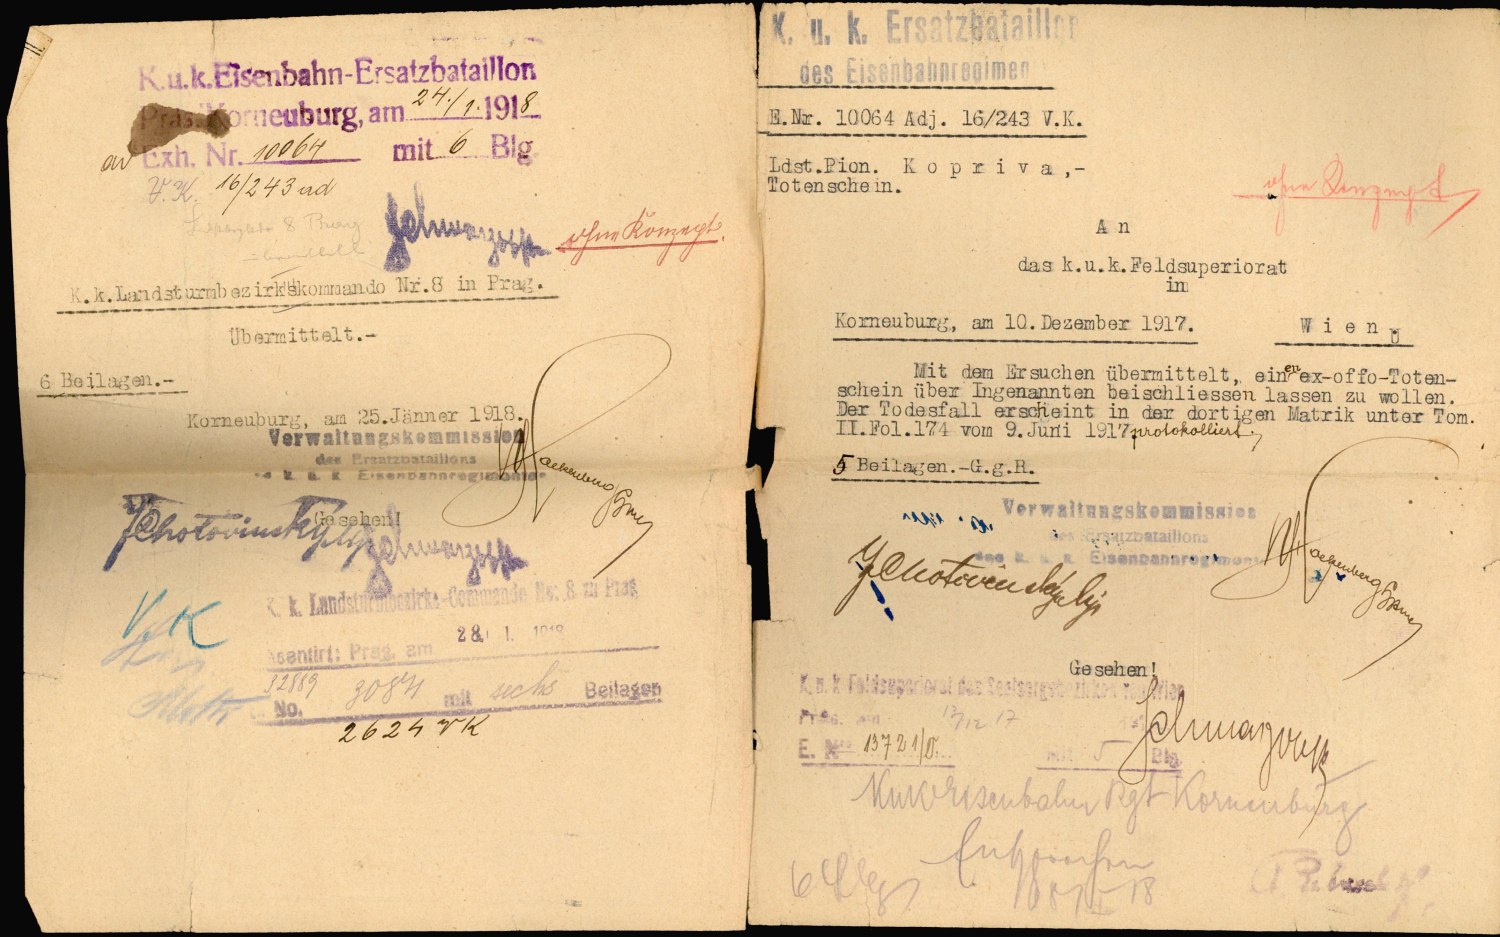 K.u.k.Eisenbahn-Ersatzbataillon
Präs. Korneuburg, am 24./1. 1918
Exh. Nr. 10064 mit 6 Blg.
V.K. 16/243 ad
Schwarzkopf
ohne Konzept.
K.k.Landsturmbezirkskommando Nr.8 in Prag.
Übermittelt.-
6 Beilagen.-
Korneuburg, am 25.Jänner 1918.
Verwaltungskommission
des Ersatzbataillons
des k. u. k. Eisenbahnregimentes
Gesehen!
V. K
K. k. Landsturmbezirks-Commando No: 8 zu Prag
Präsentirt: Prag, am 28. 1. 1918
No. 3084 mit sechs Beilagen
32889
2624 VK
K. u. k. Ersatzbataillon
des Eisenbahnregimen
E.Nr. 10064 Adj. 16/243 V.K.
Ldst.Pion. K o p r i v a ,-
Totenschein.
ohne Konzept
A n
das k.u.k.Feldsuperiorat
in
Korneuburg, am 10.Dezember 1917. W i e n
Mit dem Ersuchen übermittelt, einen ex-offo-Toten-
schein über Ingenannten beischliessen lassen zu wollen.
Der Todesfall erscheint in der dortigen Matrik unter Tom.
II.Fol.174 vom 9.Juni 1917 protokolliert.
5 Beilagen.-G.g.R.
Verwaltungskommission
des Ersatzbataillons
des k. u. k. Eisenbahnregimentes
Gesehen!
K. u. k. Feldsuperiorat des Seelsorgebezirkes Wien
Präs. am 13/12 17
E. Nr. 13721/D. mit 5 Blg.
Eisenbahn Rgt Korneuburg